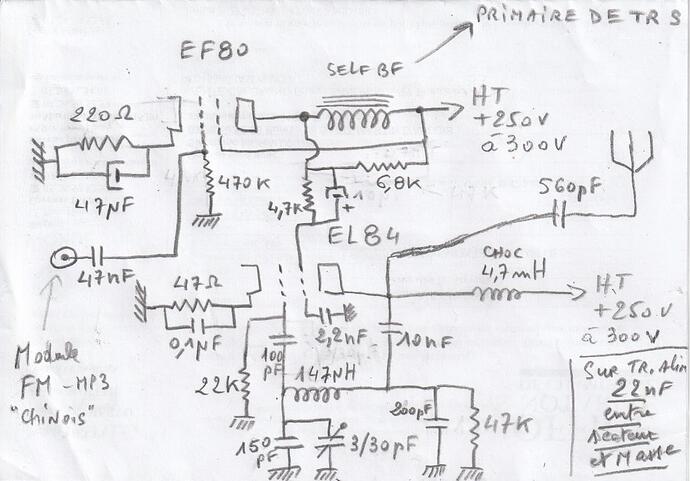 PRIMAIRE DE TRS
EF80
SELF BF
220Ω
HT
+250V
à 300V
47µF
470K
4,7K
6,8K
+
560pF
47nF
EL84
CHOC
4,7mH
47Ω
HT
+250V
à 300V
0,1µF
2,2nF
10nF
100
pF
Module
FM-MP3
"Chinois"
22K
147µH
200pF
47K
150
pF
3/30pF
Sur TR. Alim
22nF
entre
secteur
et Masse